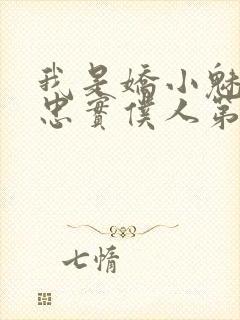 我是嬌小魅
忠實僕人第
七情